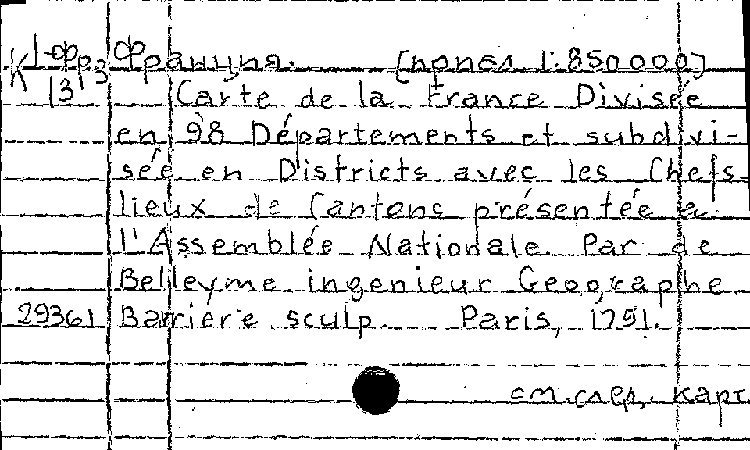 К 1-Фр₃ Франция. [попер. 1:850000]
13 Carte de la France Divisée
en 98 Départements et subdivi-
sée en Districts avec les Chefs-
lieux de Cantons présentée a
l'Assemblée Nationale. Par de
Belleyme ingenieur Geographe
29361 Barriere sculp. Paris, 1791.
см. след. карт.